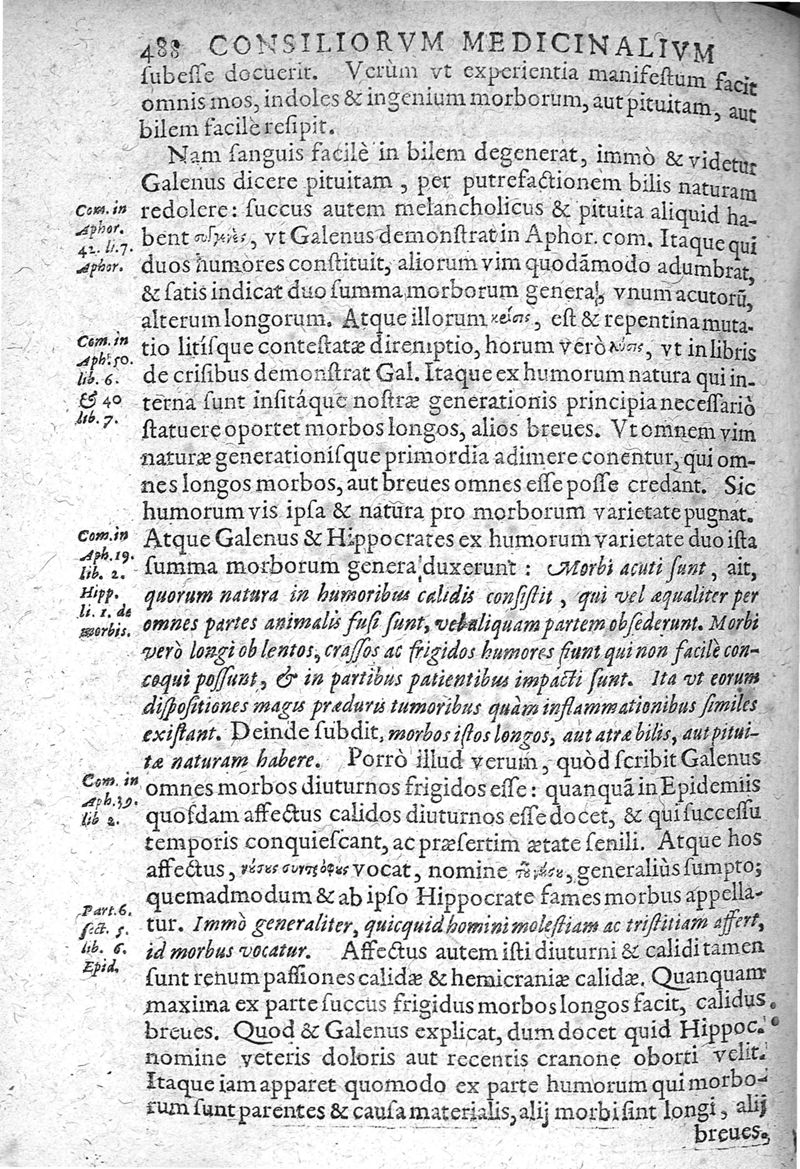 488 CONSILIORVM MEDICINALIVM
ſubeſſe docuerit. Verùm vt experientia manifeſtum facit
omnis mos, indoles & ingenium morborum, aut pituitam, aut
bilem facilè reſipit.
Nam ſanguis facilè in bilem degenerat, immò & videtur
Galenus dicere pituitam, per putrefactionem bilis naturam
redolere: ſuccus autem melancholicus & pituita aliquid ha-
bent, vt Galenus demonſtrat in Aphor. com. Itaque qui
duos humores conſtituit, aliorum vim quodãmodo adumbrat,
& ſatis indicat duo ſumma morborum genera, vnum acutorũ,
alterum longorum. Atque illorum, eſt & repentina muta-
tio litiſque conteſtatæ diremptio, horum verò λύσις, vt in libris
de criſibus demonſtrat Gal. Itaque ex humorum natura qui in-
terna ſunt inſitáque noſtræ generationis principia neceſſariò
ſtatuere oportet morbos longos, alios breues. Vt omnem vim
naturæ generationiſque primordia adimere conentur, qui om-
nes longos morbos, aut breues omnes eſſe poſſe credant. Sic
humorum vis ipſa & natura pro morborum varietate pugnat.
Atque Galenus & Hippocrates ex humorum varietate duo iſta
ſumma morborum genera duxerunt: Morbi acuti ſunt, ait,
quorum natura in humoribus calidis conſiſtit, qui vel æqualiter per
omnes partes animalis fuſi ſunt, vel aliquam partem obſederunt. Morbi
verò longi ob lentos, craſſos ac frigidos humores fiunt qui non facilè con-
coqui poſſunt, & in partibus patientibus impacti ſunt. Ita vt eorum
diſpoſitiones magis præduris tumoribus quàm inflammationibus ſimiles
exiſtant. Deinde ſubdit, morbos iſtos longos, aut atræ bilis, aut pitui-
tæ naturam habere. Porrò illud verum, quòd ſcribit Galenus
omnes morbos diuturnos frigidos eſſe: quanquã in Epidemiis
quoſdam affectus calidos diuturnos eſſe docet, & qui ſucceſſu
temporis conquieſcant, ac præſertim ætate ſenili. Atque hos
affectus, vocat, nomine, generaliùs ſumpto;
quemadmodum & ab ipſo Hippocrate fames morbus appella-
tur. Immò generaliter, quicquid homini moleſtiam ac triſtitiam affert,
id morbus vocatur. Affectus autem iſti diuturni & calidi tamen
ſunt renum paſſiones calidæ & hemicraniæ calidæ. Quanquam
maxima ex parte ſuccus frigidus morbos longos facit, calidus
breues. Quod & Galenus explicat, dum docet quid Hippoc.
nomine veteris doloris aut recentis cranone oborti velit.
Itaque iam apparet quomodo ex parte humorum qui morbo-
rum ſunt parentes & cauſa materialis, alij morbi ſint longi, alij
breues,
Com. in
Aphor.
42. li. 7.
Aphor.
Com. in
Aph. 50.
lib. 6.
& 40
lib. 7.
Com. in
Aph. 19.
lib. 2.
Hipp.
li. 1. de
morbis.
Com. in
Aph. 39.
lib 2.
Part. 6.
ſect. 5.
lib. 6.
Epid.